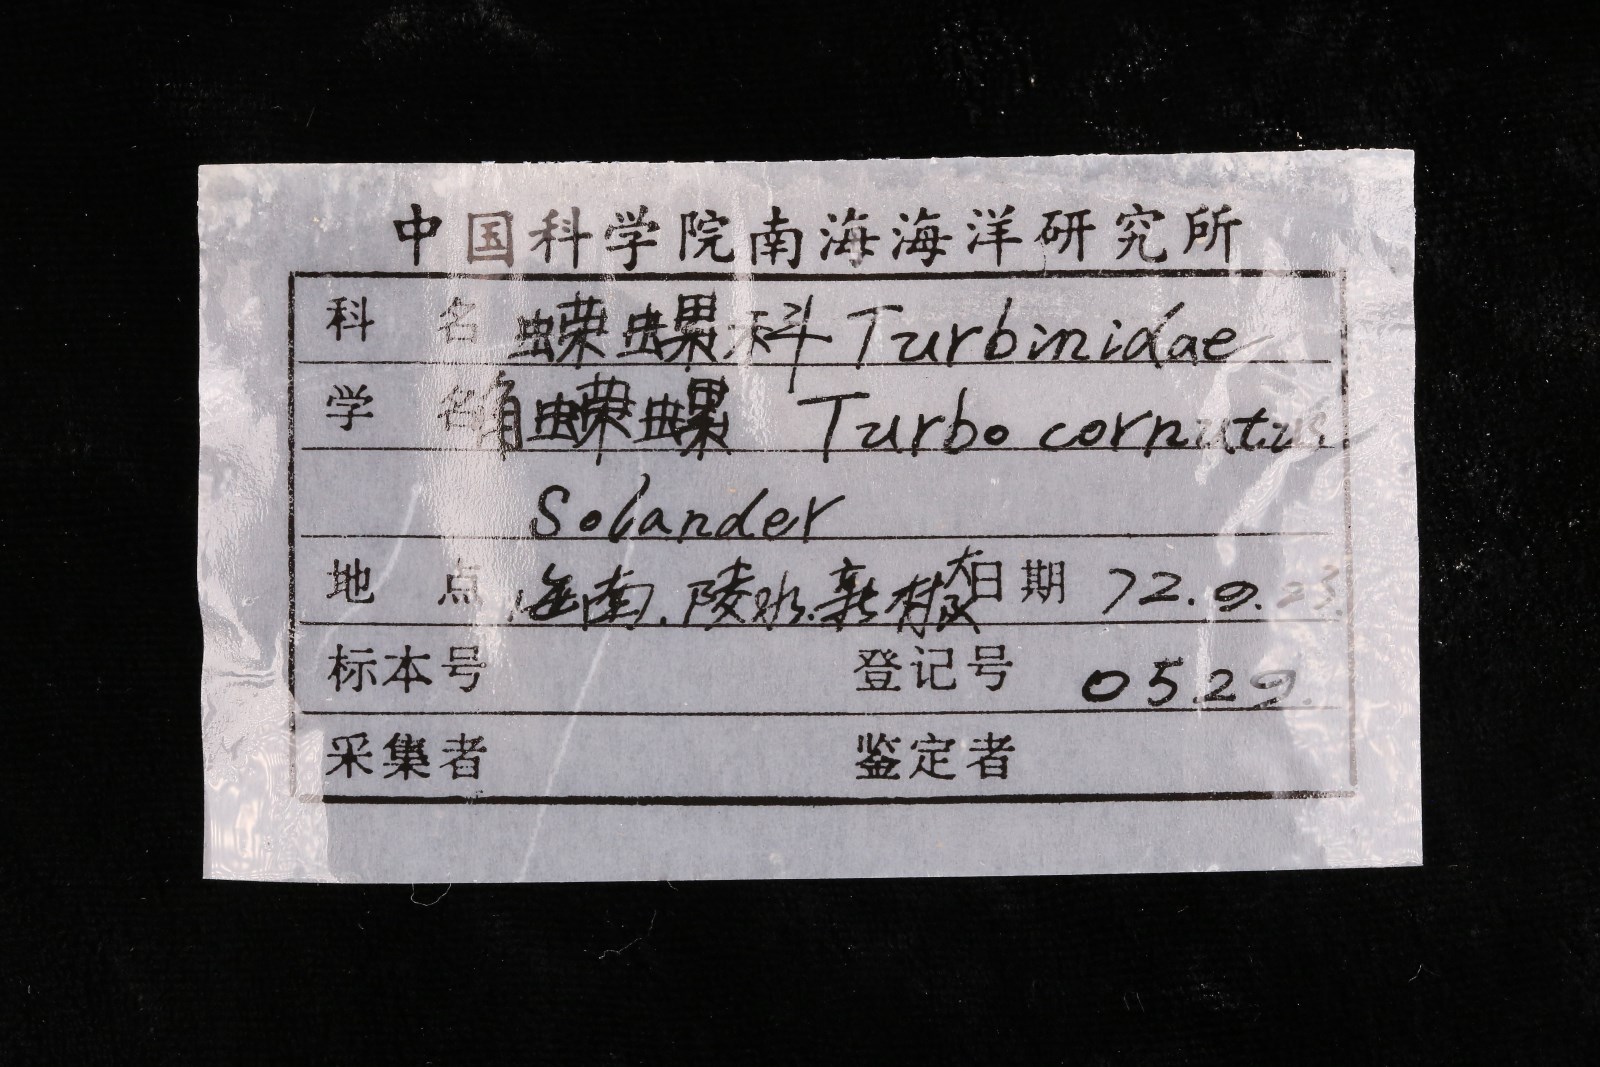 中国科学院南海海洋研究所
科 名 蝾螺科 Turbinidae
学 名 角蝾螺 Turbo cornutus
Solander
地 点 海南.陵水.新村 日期 72.9.23.
标本号 登记号 0529.
采集者 鉴定者